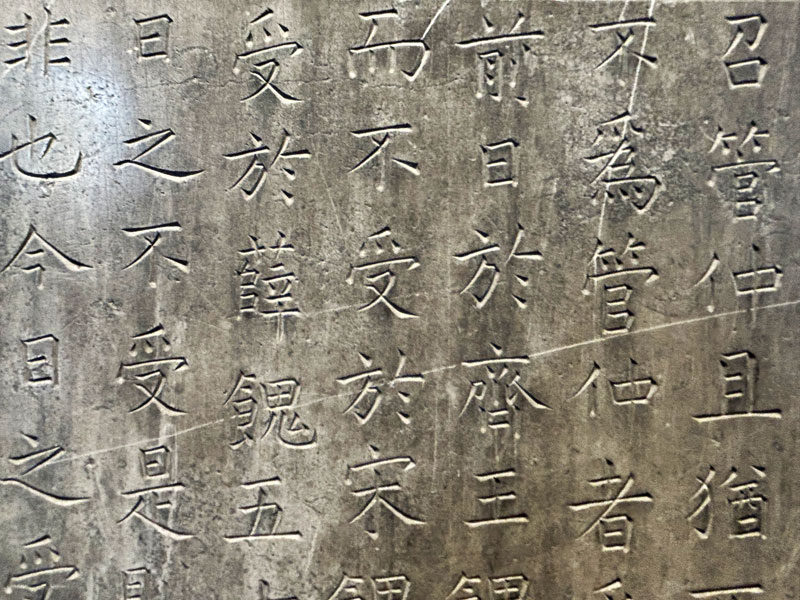 召管仲且猶
不爲管仲者
前日於齊王餽
而不受於宋餽
受於薛餽五
日之不受是
非也今日之受